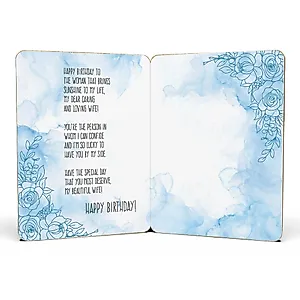 HAPPY BIRTHDAY TO
THE WOMAN THAT BRINGS
SUNSHINE TO MY LIFE,
MY DEAR CARING
AND LOVING WIFE!
YOU'RE THE PERSON IN
WHOM I CAN CONFIDE
AND I'M SO LUCKY TO
HAVE YOU BY MY SIDE.
HAVE THE SPECIAL DAY
THAT YOU MOST DESERVE,
MY BEAUTIFUL WIFE!
HAPPY BIRTHDAY!